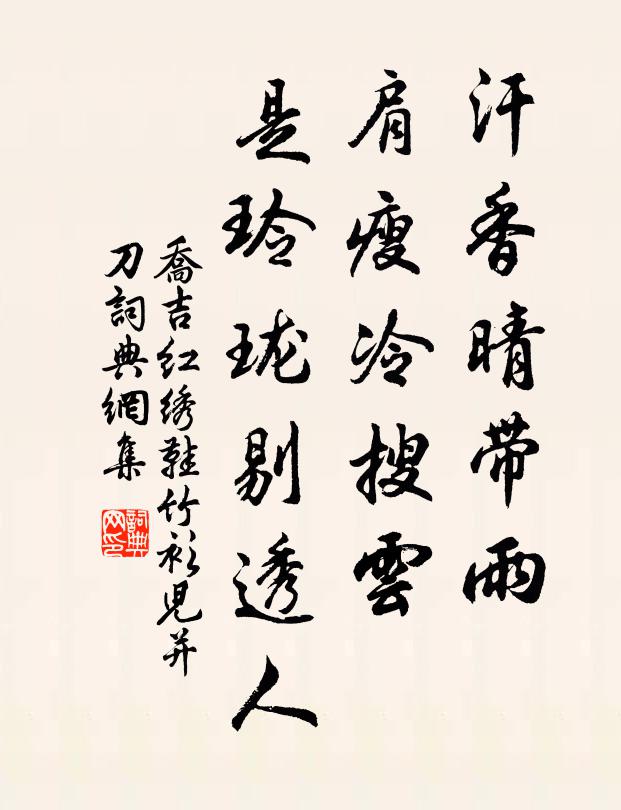 汗香晴带雨
肩瘦冷搜雲
是玲珑剔透人
喬吉红绣鞋竹衫儿并
刀詞典網集
詞典
网印